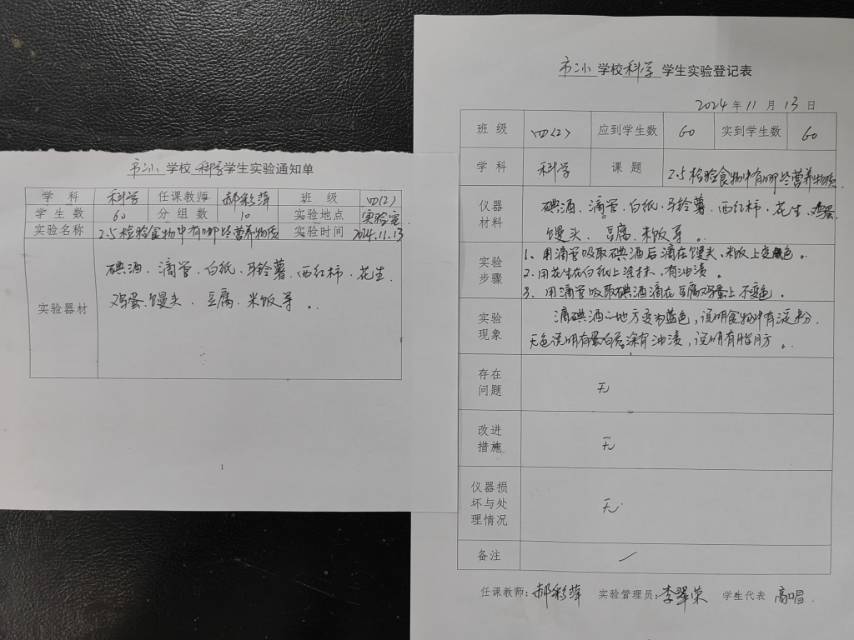 市二小 学校 科学 学生实验通知单
学 科 科学 任课教师 郝彩萍 班 级 四(2)
学 生 数 60 分 组 数 10 实验地点 实验室
实验名称 2.5检验食物中有哪些营养物质 实验时间 2024.11.13
实验器材 碘酒、滴管、白纸、马铃薯、西红柿、花生、
鸡蛋、馒头、豆腐、米饭等。
1
市二小 学校 科学 学生实验登记表
2024 年 11 月 13 日
班 级 四(2) 应到学生数 60 实到学生数 60
学 科 科学 课 题 2.5检验食物中有哪些营养物质
仪器
材料
碘酒、滴管、白纸、马铃薯、西红柿、花生、鸡蛋
馒头、豆腐、米饭等。
实验
步骤
1、用滴管吸取碘酒后滴在馒头、米饭上变色。
2、用花生在白纸上涂抹、有油渍。
3、用滴管吸取碘酒滴在豆腐鸡蛋上不变色。
实验
现象
滴碘酒的地方变为蓝色,说明食物中有淀粉.
无色说明有蛋白质涂有油渍,说明有脂肪。
存在
问题
无
改进
措施
无
仪器损
坏与处
理情况
无
备注
任课教师:郝彩萍 实验管理员:李翠荣 学生代表 高唱